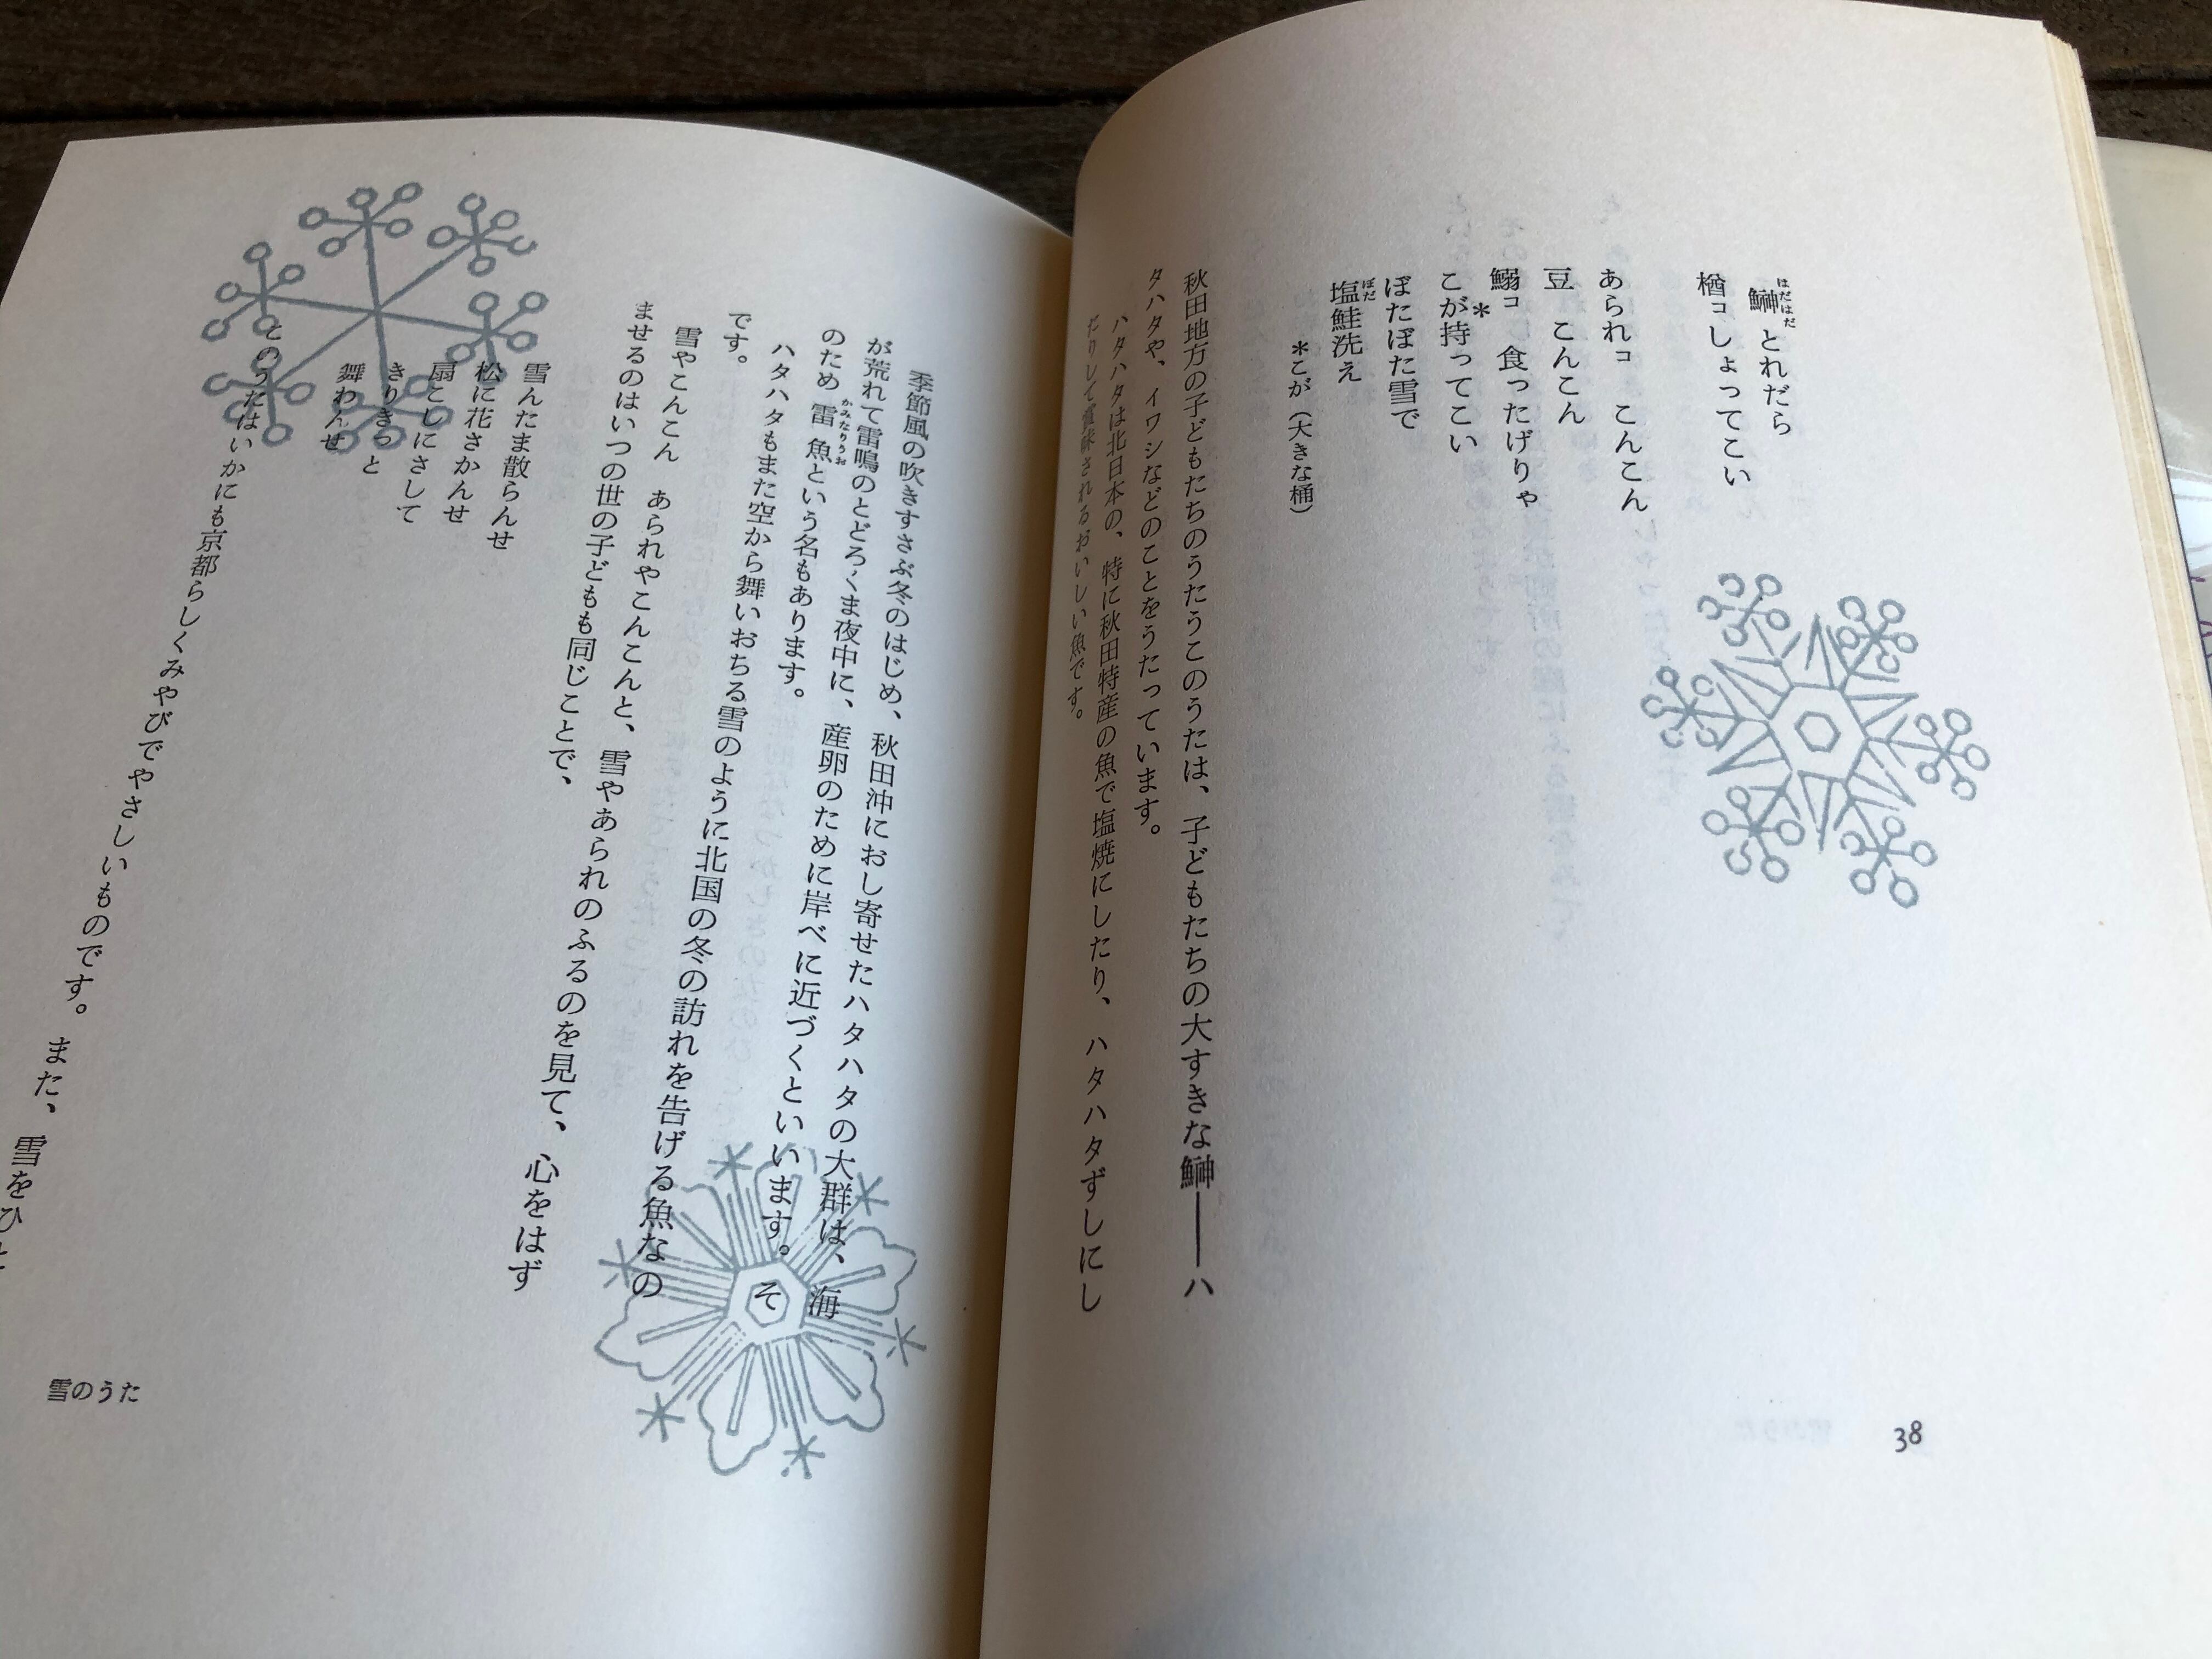 鰰とれだら
楢コしょってこい
あられコ　こんこん
豆　こんこん
鰯コ　食ったげりゃ
こが＊持ってこい
ぼたぼた雪で
塩鮭洗え
＊こが（大きな桶）
秋田地方の子どもたちのうたうこのうたは、子どもたちの大すきな鰰――ハ
タハタや、イワシなどのことをうたっています。
ハタハタは北日本の、特に秋田特産の魚で塩焼にしたり、ハタハタずしにし
たりして賞味されるおいしい魚です。
38
季節風の吹きすさぶ冬のはじめ、秋田沖におし寄せたハタハタの大群は、海
が荒れて雷鳴のとどろくま夜中に、産卵のために岸べに近づくといいます。そ
のため雷魚という名もあります。
ハタハタもまた空から舞いおちる雪のように北国の冬の訪れを告げる魚なの
です。
雪やこんこん　あられやこんこんと、雪やあられのふるのを見て、心をはず
ませるのはいつの世の子どもも同じことで、
雪んたま散らんせ
松に花さかんせ
扇こしにさして
きりきっと
舞わんせ
このうたはいかにも京都らしくみやびでやさしいものです。また、雪をひ
雪のうた